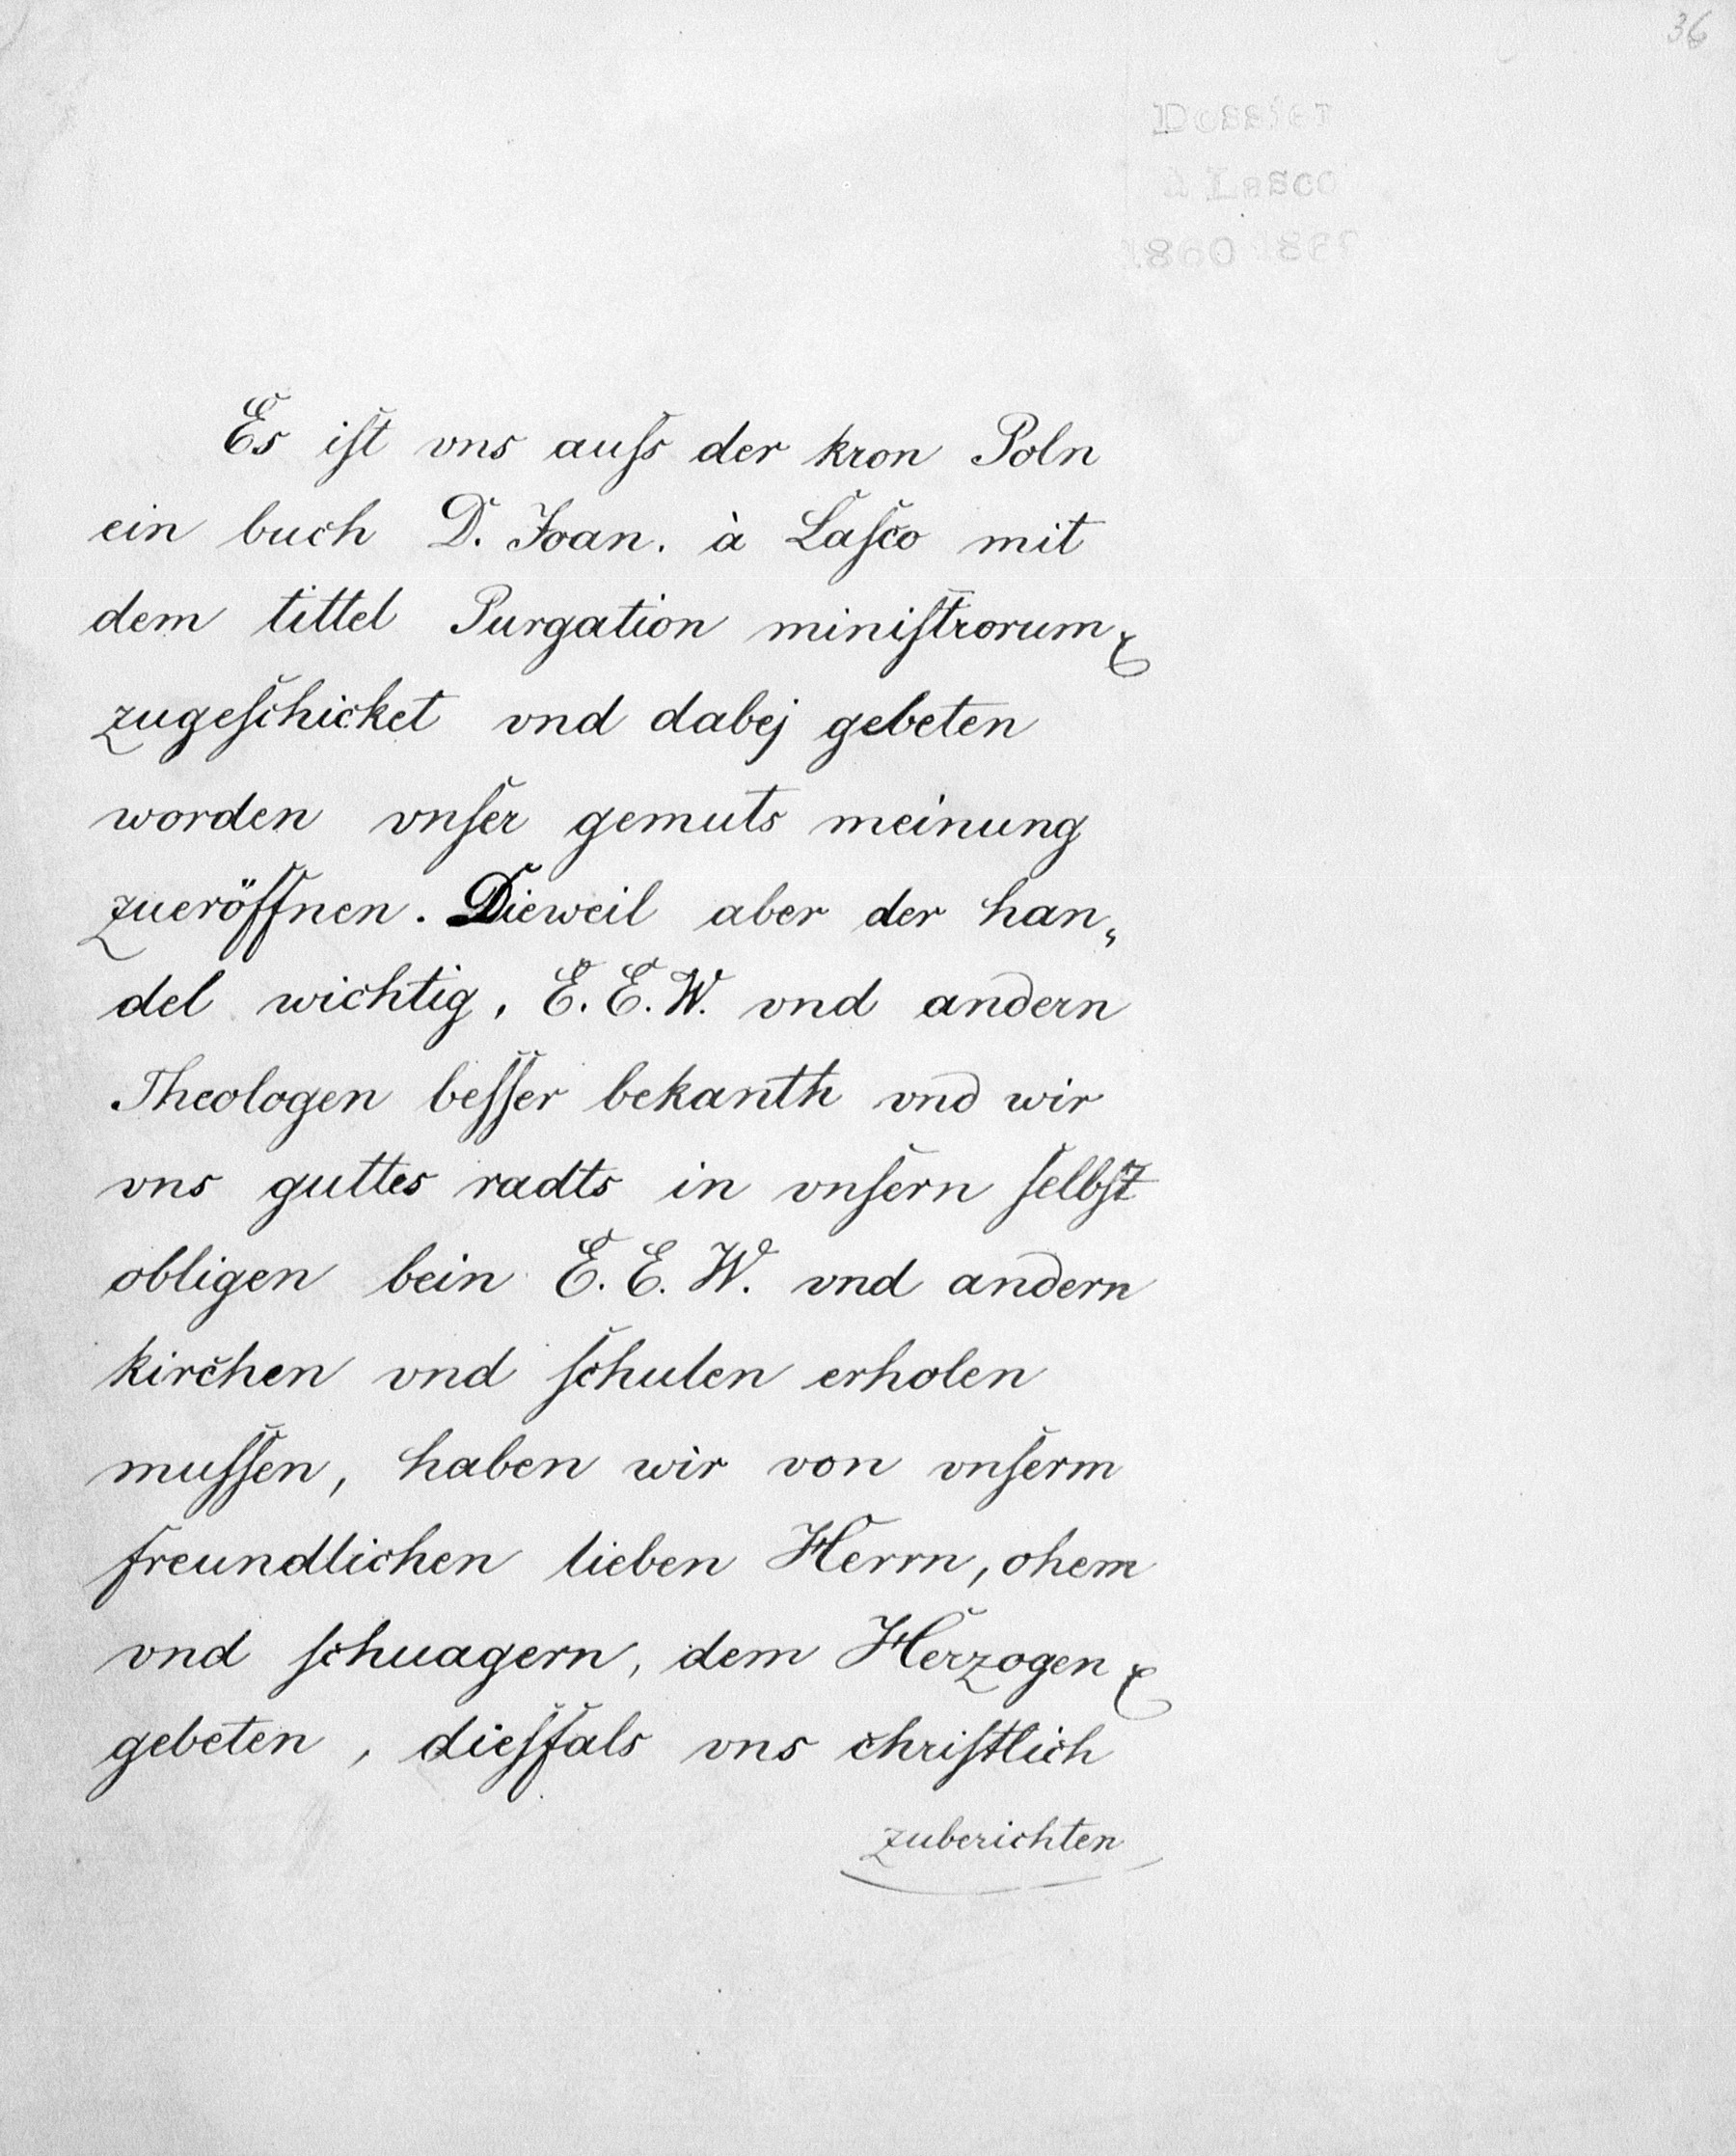 36
Dossier
à Lasco
Es iſt vns auſs der kron Poln
ein buch D. Joan. à Laſco mit
dem tittel Purgation miniſtrorum ꝛc
zugeſchicket vnd dabej gebeten
worden vnſer gemuts meinung
zueröffnen. Dieweil aber der han„
del wichtig, E. E. W. vnd andern
Theologen beſſer bekanth vnd wir
vns guttes radts in vnſern ſelbſt
obligen bein E. E. W. vnd andern
kirchen vnd ſchulen erholen
muſſen, haben wir von vnſerm
freundlichen lieben Herrn, ohem
vnd ſchuagern, dem Herzogen ꝛc
gebeten, dieſfals vns chriſtlich
zuberichten